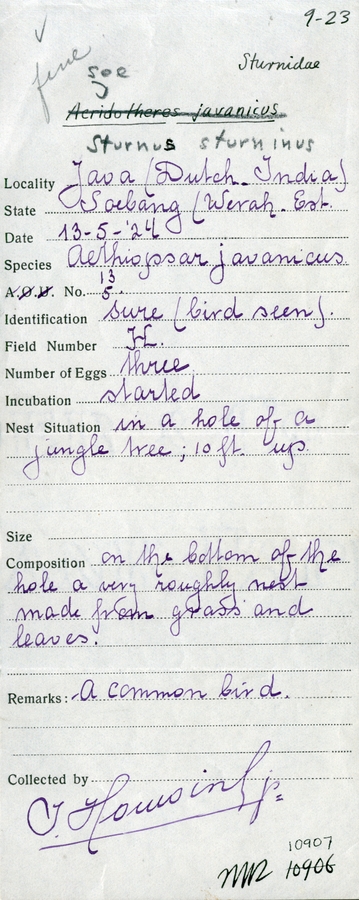 9-23
fine
soe
Sturnidae
Acridotheres javanicus
Sturnus sturninus
Locality Java (Dutch. India)
State Soebang (Werah. Est.
Date 13-5-'24
Species Aethiopsar javanicus
A.O.U. No. 13/5
Identification sure (bird seen).
Field Number
Number of Eggs three
Incubation started
Nest Situation in a hole of a
jungle tree; 10 ft. up
Size
Composition on the bottom of the
hole a very roughly nest
made from grass and
leaves.
Remarks: A common bird.
Collected by
10907
10906